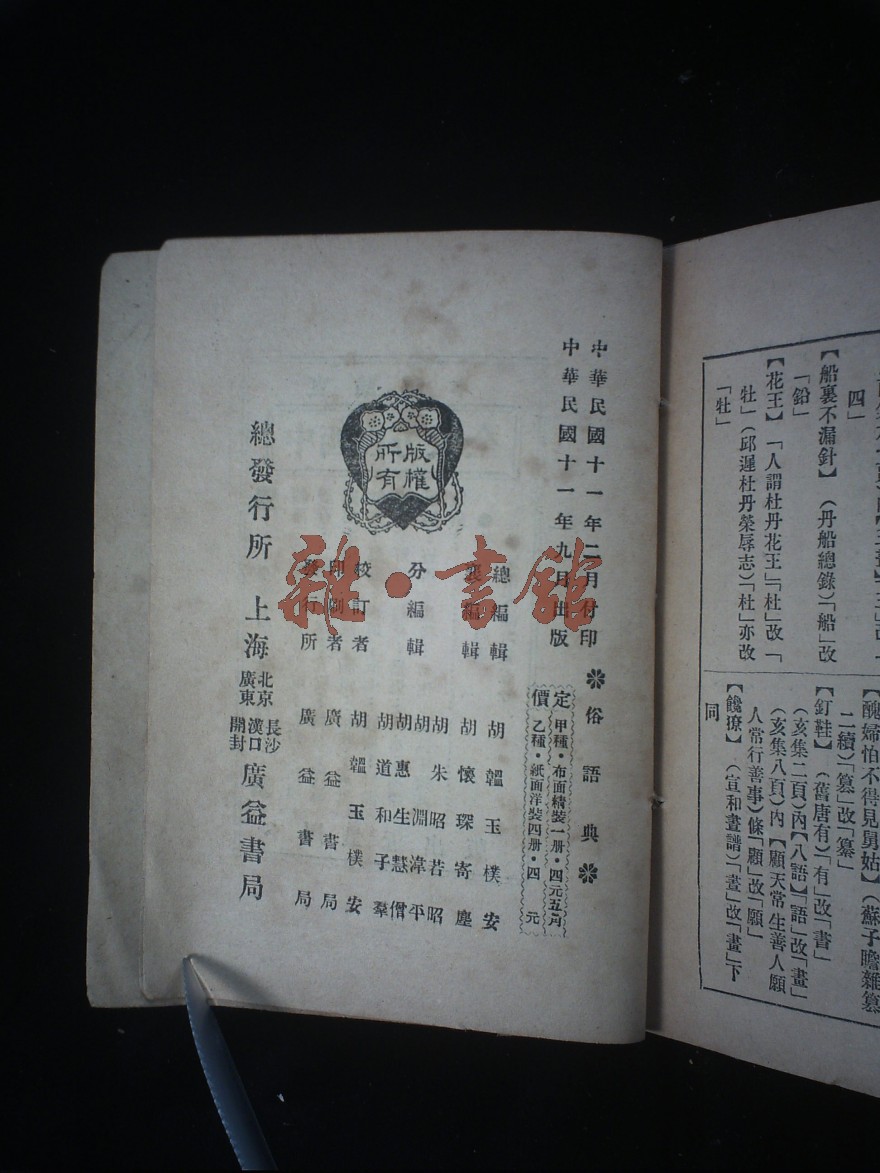 四」
【船裏不漏針】(丹船總錄)「船」改
「鉛」
【花王】「人謂杜丹花王」「杜」改「
牡」(邱遲杜丹榮辱志)「杜」亦改
「牡」
【醜婦怕不得見舅姑】(蘇子瞻雜纂
二續)「纂」改「纂」
【釘鞋】(舊唐有)「有」改「書」
(亥集二頁)內【八語】「語」改「畫」
(亥集八頁)內【願天常生善人願
人常行善事】條「顧」改「願」
【饞獠】(宣和畫譜)「晝」改「畫」下
同
中華民國十一年二月付印
中華民國十一年九月出版
❋俗語典❋
定價
甲種・布面精裝一册・四元五角
乙種・紙面洋裝四册・四元
總編輯 胡韞玉樸安
襄編輯 胡懷琛寄塵
分編輯
胡朱昭若昭
胡淵渾平
胡惠生慧僧
胡道和子羣
校訂者 胡韞玉樸安
印刷者 廣益書局
發行所 廣益書局
版權
所有
總發行所 上海
北京
廣東
長沙
漢口
開封
廣益書局
雜・書館